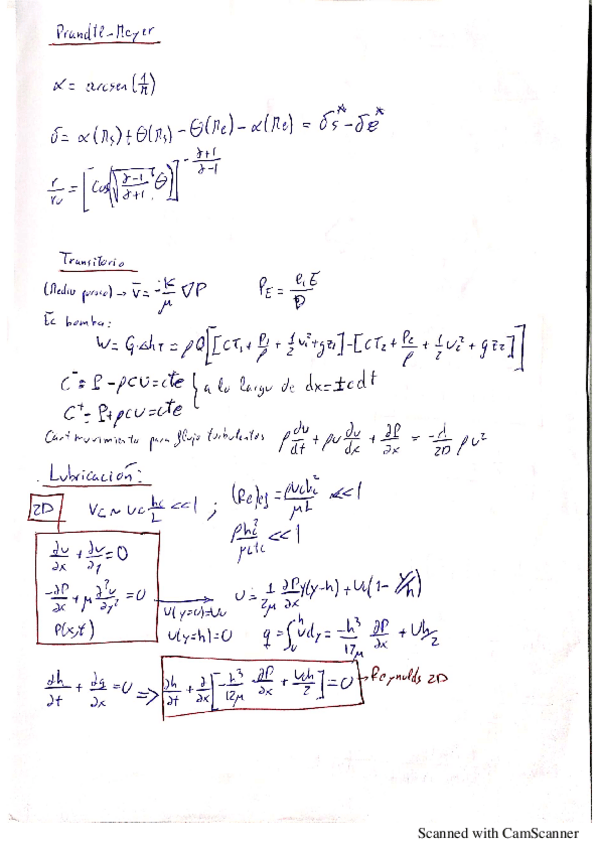 Prandtl-Meyer
α = arcsen(1/M)
δ = α(Ms) + θ(Ms) - θ(Me) - α(Me) = δs* - δe*
r/ru = [cos(√((γ-1)/(γ+1)) θ)]^(-(γ+1)/(γ-1))
Transitorio
(Medio poroso) → v̄ = -k/μ ∇P
Ec bomba:
W = G·Δhτ = ρQ[[CT1 + P1/ρ + 1/2 v1² + gz1] - [CT2 + P2/ρ + 1/2 v2² + gz2]]
C⁻ = P - ρcu = cte
C⁺ = P + ρcu = cte } a lo largo de dx = ±cdt
Cant movimiento para flujo turbulentos ρ du/dt + ρu du/dx + ∂P/∂x = -λ/2D ρu²
Lubricación:
2D Vc ~ Uc hc/L <<1 ; (Re)ef = ρUchc²/μL <<1
ρhc²/μtc <<1
∂u/∂x + ∂v/∂y = 0
-∂P/∂x + μ ∂²u/∂y² = 0 → u = 1/2μ ∂P/∂x y(y-h) + U(1 - y/h)
P(x,t) u(y=h)=0 q = ∫₀ʰ udy = -h³/12μ ∂P/∂x + Uh/2
∂h/∂t + ∂q/∂x = 0 => ∂h/∂t + ∂/∂x[-h³/12μ ∂P/∂x + Uh/2] = 0 → Reynolds 2D
Scanned with CamScanner